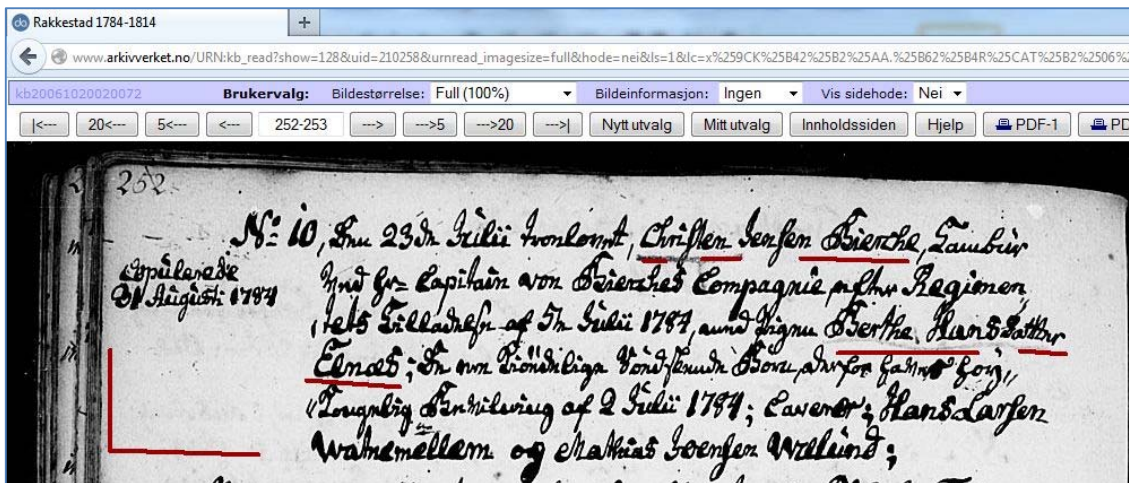 Rakkestad 1784-1814
+
www.arkivverket.no/URN:kb_read?show=128&uid=210258&urnread_imagesize=full&hode=nei&ls=1&lc=x%259CK%25B42%25B2%25AA.%25B62%25B4R%25CAT%25B2%2506%2
kb20061020020072 Brukervalg: Bildestørrelse: Full (100%) Bildeinformasjon: Ingen Vis sidehode: Nei
|<--- 20<--- 5<--- <--- 252-253 ---> --->5 --->20 --->| Nytt utvalg Mitt utvalg Innholdssiden Hjelp PDF-1 PD
252.
No 10, Den 23de Julii Trolovet, Christen Jensen Bierche, Tambur
Copulerede
31 Augusti 1784
Ved Hr= Capitain von Bierches Compagnie, efter Regimen
tets Tilladelse af 5te Julii 1784, und Pigen Berthe Hansdatter
Elnæs; De ere Söskende Börn, derfor haves
af 2 Julii 1784; Caverer; Hans Larsen
og Mathias